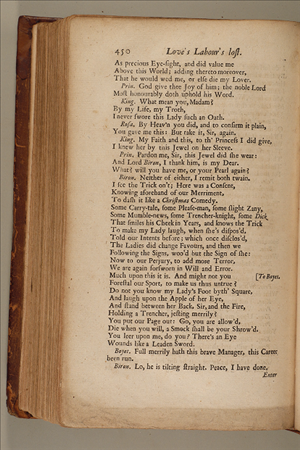 450 Love's Labour's lost.
As precious Eye-sight, and did value me
Above this World; adding thereto moreover,
That he would wed me, or else die my Lover.
Prin. God give thee Joy of him; the noble Lord
Most honourably doth uphold his Word.
King. What mean you, Madam?
By my Life, my Troth,
I never swore this Lady such an Oath.
Rosa. By Heav'n you did, and to confirm it plain,
You gave me this: But take it, Sir, again.
King. My Faith and this, to th' Princess I did give,
I knew her by this Jewel on her Sleeve.
Prin. Pardon me, Sir, this Jewel did she wear:
And Lord Biron, I thank him, is my Dear.
What? will you have me, or your Pearl again?
Biron. Neither of either, I remit both twain.
I see the Trick on't; Here was a Consent,
Knowing aforehand of our Merriment,
To dash it like a Christmas Comedy.
Some Carry-tale, some Please-man, some slight Zany,
Some Mumble-news, some Trencher-knight, some Dick
That smiles his Cheek in Years, and knows the Trick
To make my Lady laugh, when she's dispos'd,
Told our Intents before; which once disclos'd,
The Ladies did change Favours, and then we
Following the Signs, woo'd but the Sign of she:
Now to our Perjury, to add more Terror,
We are again forsworn in Will and Error.
Much upon this it is. And might not you [To Boyet.
Forestal our Sport, to make us thus untrue?
Do not you know my Lady's Foot byth' Square,
And laugh upon the Apple of her Eye,
And stand between her Back, Sir, and the Fire,
Holding a Trencher, jesting merrily?
You put our Page out: Go, you are allow'd,
Die when you will, a Smock shall be your Shrow'd.
You leer upon me, do you? There's an Eye
Wounds like a Leaden Sword.
Boyet. Full merrily hath this brave Manager, this Career
been run.
Biron. Lo, he is tilting straight. Peace, I have done.
Enter